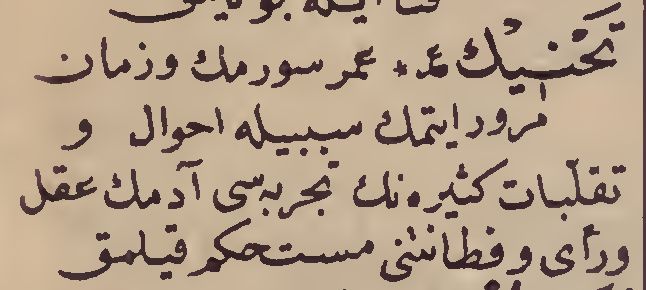 تَحْنِيْك ع. عمر سورمك و زمان
مرور ايتمك سببيله احوال و
تقلّبات كثيره نك تجربه سى آدمك عقل
و رأى و فطانتنى مستحكم قيلمق